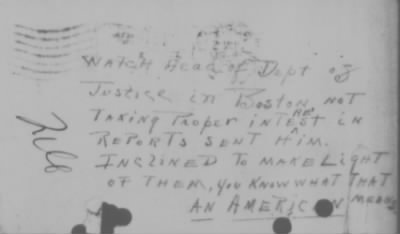 WATCH Head of Dept of
Justice in Boston NOT
TAKING PROPER INTEREST in
REPORTS SENT HIM.
INCLINED TO MAKE LIGHT
OF THEM, YOU KNOW WHAT THAT
MEANS
AN AMERICAN